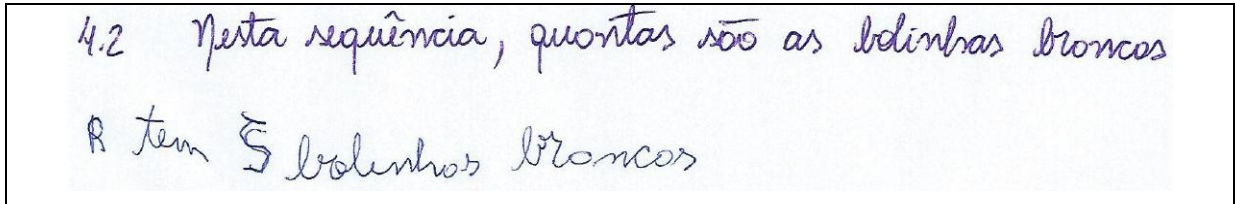 4.2 Nesta sequência, quantas são as bolinhas brancas
R tem 5 bolinhas brancas